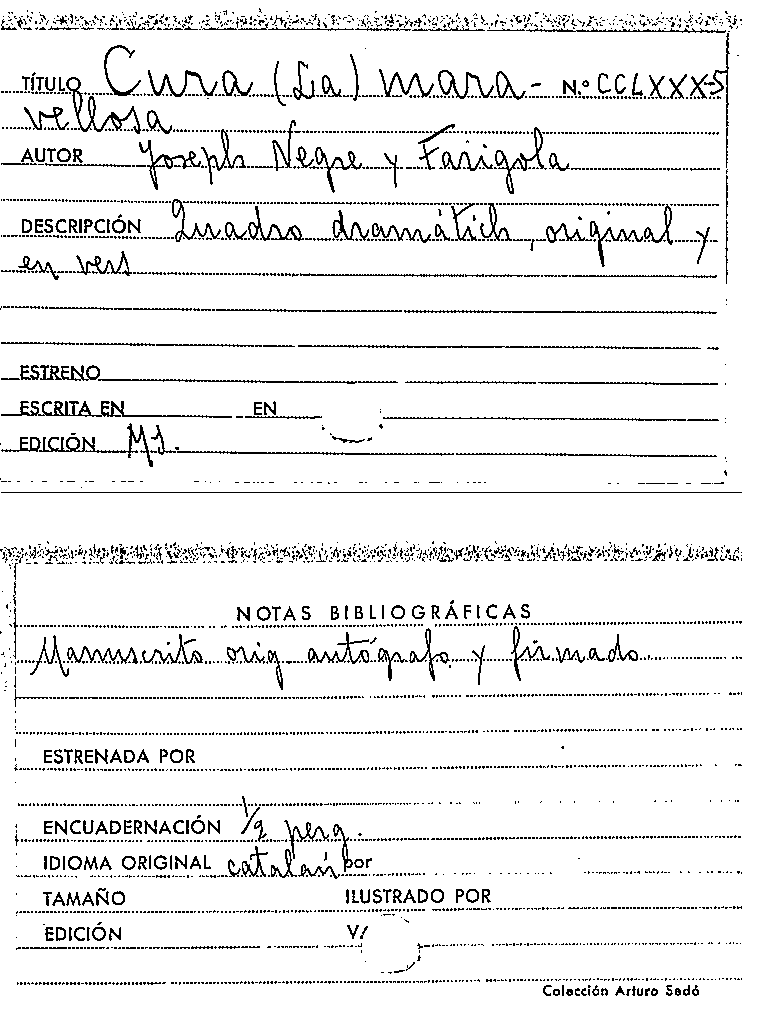 TÍTULO Cura (La) mara- N.º CCLXXX-5
vellosa
AUTOR Joseph Negre y Farigola
DESCRIPCIÓN Quadro dramátich, original y
en vers
ESTRENO
ESCRITA EN EN
EDICIÓN Ms.
NOTAS BIBLIOGRÁFICAS
Manuscrito orig. autógrafo y firmado
ESTRENADA POR
ENCUADERNACIÓN 1/2 perg.
IDIOMA ORIGINAL catalán por
TAMAÑO ILUSTRADO POR
EDICIÓN V/
Colección Arturo Sedó